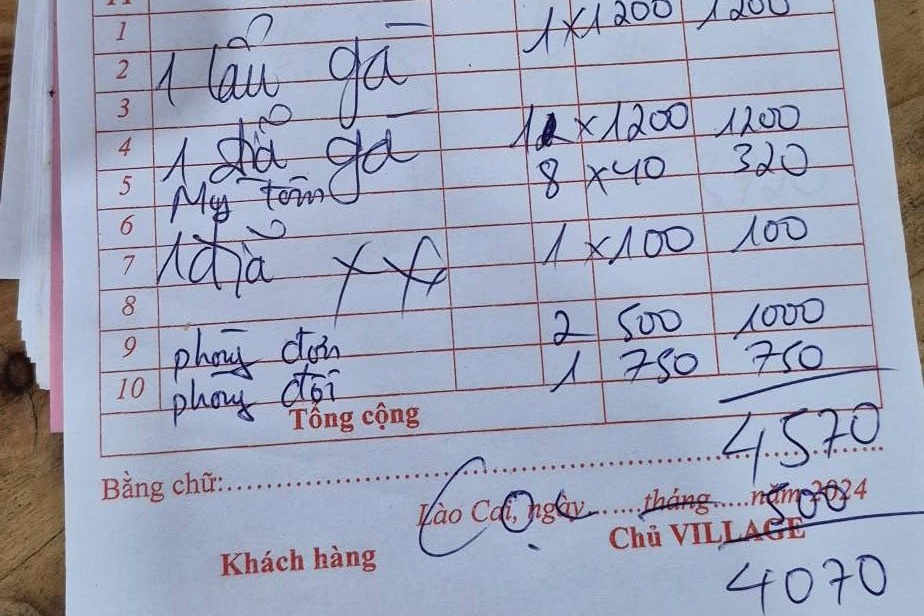 1
1 lẩu gà 1 x 1200 1200
2
3
1 đĩa gà 1 x 1200 1200
4
5 Mỳ tôm 8 x 40 320
6
1 đĩa 1 x 100 100
7
8
9 phòng đơn 2 500 1000
10 phòng đôi 1 750 750
Tổng cộng
4570
Bằng chữ:
Lào Cai, ngày tháng năm 2024
500
Khách hàng Chủ VILLAGE
4070